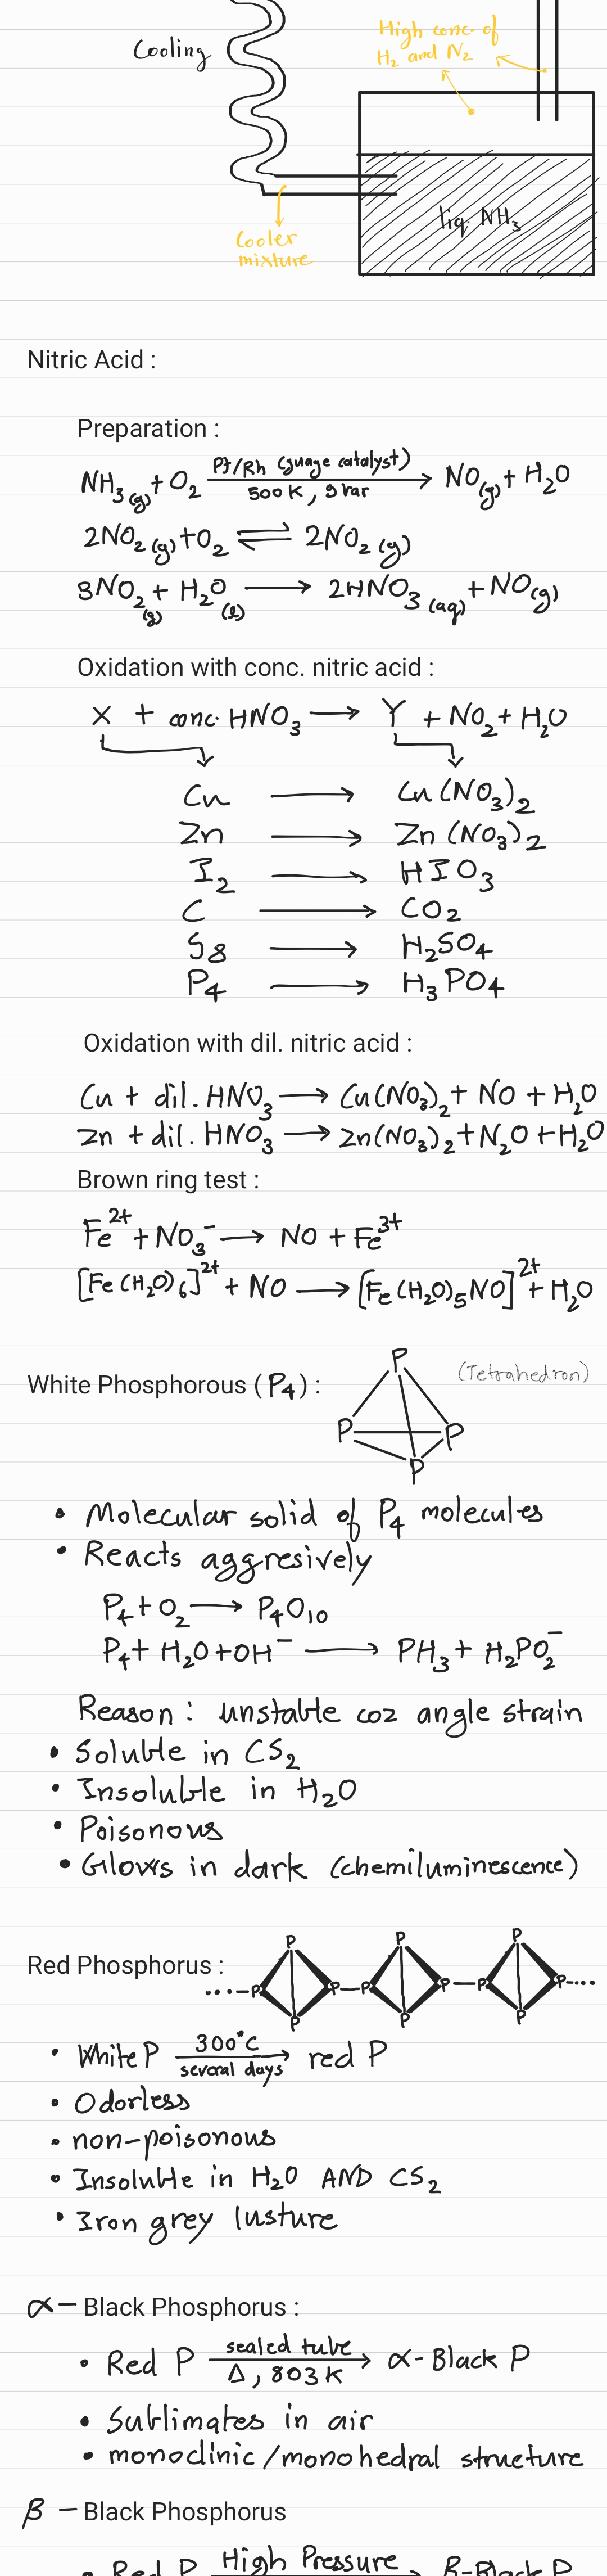 High conc. of
H₂ and N₂
Cooling
liq. NH₃
Cooler
mixture
Nitric Acid :
Preparation :
NH₃(g) + O₂ —Pt/Rh (guage catalyst) / 500K, 9 bar→ NO(g) + H₂O
2NO₂(g) + O₂ ⇌ 2NO₂(g)
3NO₂(g) + H₂O(l) → 2HNO₃(aq) + NO(g)
Oxidation with conc. nitric acid :
X + conc. HNO₃ → Y + NO₂ + H₂O
Cu → Cu(NO₃)₂
Zn → Zn(NO₃)₂
I₂ → HIO₃
C → CO₂
S₈ → H₂SO₄
P₄ → H₃PO₄
Oxidation with dil. nitric acid :
Cu + dil. HNO₃ → Cu(NO₃)₂ + NO + H₂O
Zn + dil. HNO₃ → Zn(NO₃)₂ + N₂O + H₂O
Brown ring test :
Fe²⁺ + NO₃⁻ → NO + Fe³⁺
[Fe(H₂O)₆]²⁺ + NO → [Fe(H₂O)₅NO]²⁺ + H₂O
White Phosphorous (P₄) :
P
P P
P
(Tetrahedron)
• Molecular solid of P₄ molecules
• Reacts aggresively
P₄ + O₂ → P₄O₁₀
P₄ + H₂O + OH⁻ → PH₃ + H₂PO₂⁻
Reason : unstable coz angle strain
• Soluble in CS₂
• Insoluble in H₂O
• Poisonous
• Glows in dark (chemiluminescence)
Red Phosphorus :
P P P
....–P P–P P–P P....
P P P
• White P —300°C / several days→ red P
• Odorless
• non-poisonous
• Insoluble in H₂O AND CS₂
• Iron grey lusture
α – Black Phosphorus :
• Red P —sealed tube / Δ, 803K→ α-Black P
• Sublimates in air
• monoclinic/monohedral structure
β – Black Phosphorus
• Red P —High Pressure→ β-Black P